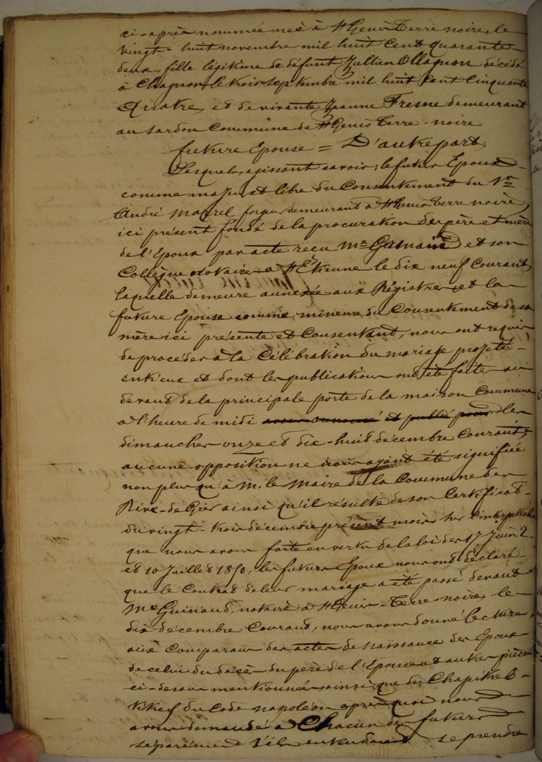 ci-après nommée née à St Genis Terre noire, le
vingt huit novembre mil huit cent quarante
deux, fille légitime de défunt Jullien décédé
à le trois septembre mil huit cent cinquante
Quatre, et de vivante, Jeanne Fresne demeurant
au Sardon Commune de St Genis Terre-noire
future Epouse = D'autre part,
Lesquels, agissant savoir; le futur Epoux
comme majeur et libre du Consentement du Sr
André demeurant à St Genis Terre noire,
ici présent fondé de la procuration des père et mère
de l'Epoux par acte reçu Me et son
Collègue notaires à St Etienne le dix neuf Courant,
laquelle demeure annexée aux Registres et la
future Epouse comme mineure du Consentement de sa
mère ici présente et Consentant, nous ont requis
de procéder à la Célébration du mariage projeté
entr'eux et dont les publications ont été faites au
devant de la principale porte de la maison Commune
à l'heure de midi les
dimanches onze et dix-huit décembre Courant,
aucune opposition ne ayant été signifiée
non plus qu'à M. le Maire de la Commune de
Rive-de-Gier ainsi qu'il résulte de son Certificat
du vingt-trois décembre présent mois, sur l'interpellation
que nous avons faite en vertu de la loi des 17 Juin
et 10 Juillet 1850, les futurs Epoux nous ont déclaré
que le Contrat de leur mariage a été passé devant
Me notaire à St Genis-Terre-noire, le
dix décembre Courant, nous avons donné lecture
aux Comparans des actes de naissance des Epoux
de celui du décès du père de l'Epouse et autres pièces
ci-dessus mentionnées ainsi que du Chapitre 6
du Code napoléon après quoi nous
avons demandé à Chacun des futurs
séparément s'ils entendent se prendre